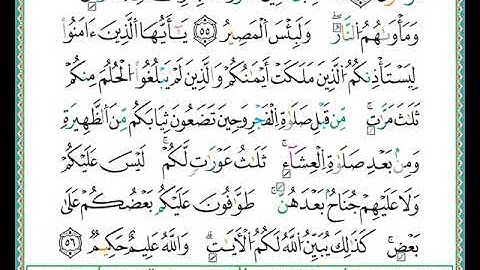 وَمَأْوَىٰهُمُ النَّارُ وَلَبِئْسَ الْمَصِيرُ ٥٥ يَٰأَيُّهَا الَّذِينَ ءَامَنُوا
لِيَسْتَـْٔذِنكُمُ الَّذِينَ مَلَكَتْ أَيْمَٰنُكُمْ وَالَّذِينَ لَمْ يَبْلُغُوا الْحُلُمَ مِنكُمْ
ثَلَٰثَ مَرَّٰتٍ مِّن قَبْلِ صَلَوٰةِ الْفَجْرِ وَحِينَ تَضَعُونَ ثِيَابَكُم مِّنَ الظَّهِيرَةِ
وَمِنۢ بَعْدِ صَلَوٰةِ الْعِشَاءِ ثَلَٰثُ عَوْرَٰتٍ لَّكُمْ لَيْسَ عَلَيْكُمْ
وَلَا عَلَيْهِمْ جُنَاحٌۢ بَعْدَهُنَّ طَوَّٰفُونَ عَلَيْكُم بَعْضُكُمْ عَلَىٰ
بَعْضٍ كَذَٰلِكَ يُبَيِّنُ اللَّهُ لَكُمُ الْأٓيَٰتِ وَاللَّهُ عَلِيمٌ حَكِيمٌ ٥٦